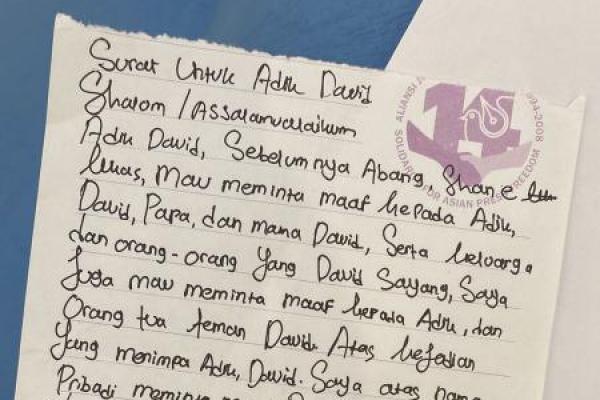 Surat Untuk Adik David
Shalom / Assalamualaikum
Adik David, Sebelumnya Abang, Shane
lukas, mau meminta maaf kepada Adik,
David, Papa, dan mama David, Serta keluarga
dan orang-orang Yang David Sayang, Saya
Juga mau meminta maaf kepada Adik, dan
Orang tua teman David. Atas kejadian
Yang menimpa Adik, David. Saya atas nama
Pribadi
ALIANSI
14
94-2008
SOLIDARI FOR ASIAN PRESS FREEDOM